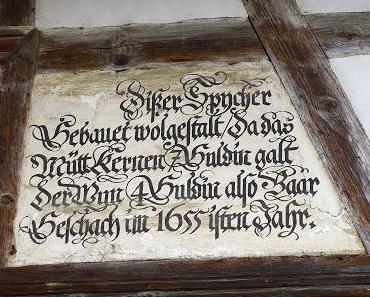 Dißer Spycher
Gebauet wolgestalt / Da das
Mütt Kernen 7 Guldin galt
Der Wyn 4 Guldin also Baar
Geschach im 1655 isten Jahr.